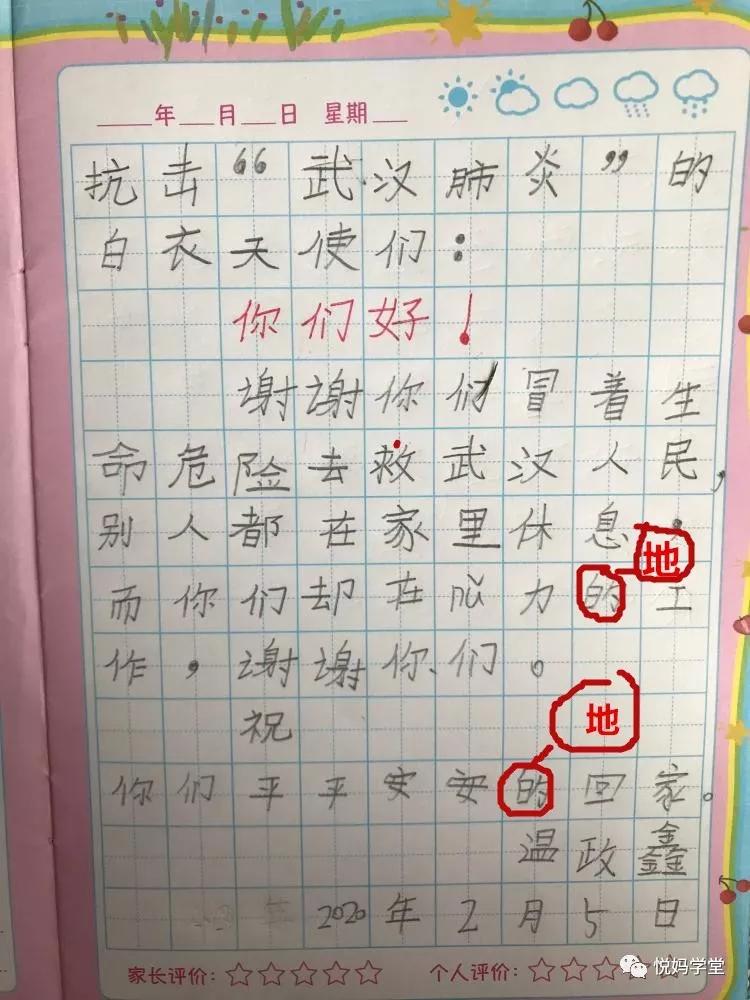 ____年___月___日 星期___
抗击“武汉肺炎”的
白衣天使们：
你们好！
谢谢你们冒着生
命危险去救武汉人民，
别人都在家里休息，
地
而你们却在心力的工
作，谢谢你们。
地
祝
你们平平安安的回家。
温政鑫
2020年2月5日
家长评价：☆☆☆☆☆ 个人评价：☆☆☆☆☆
悦妈学堂